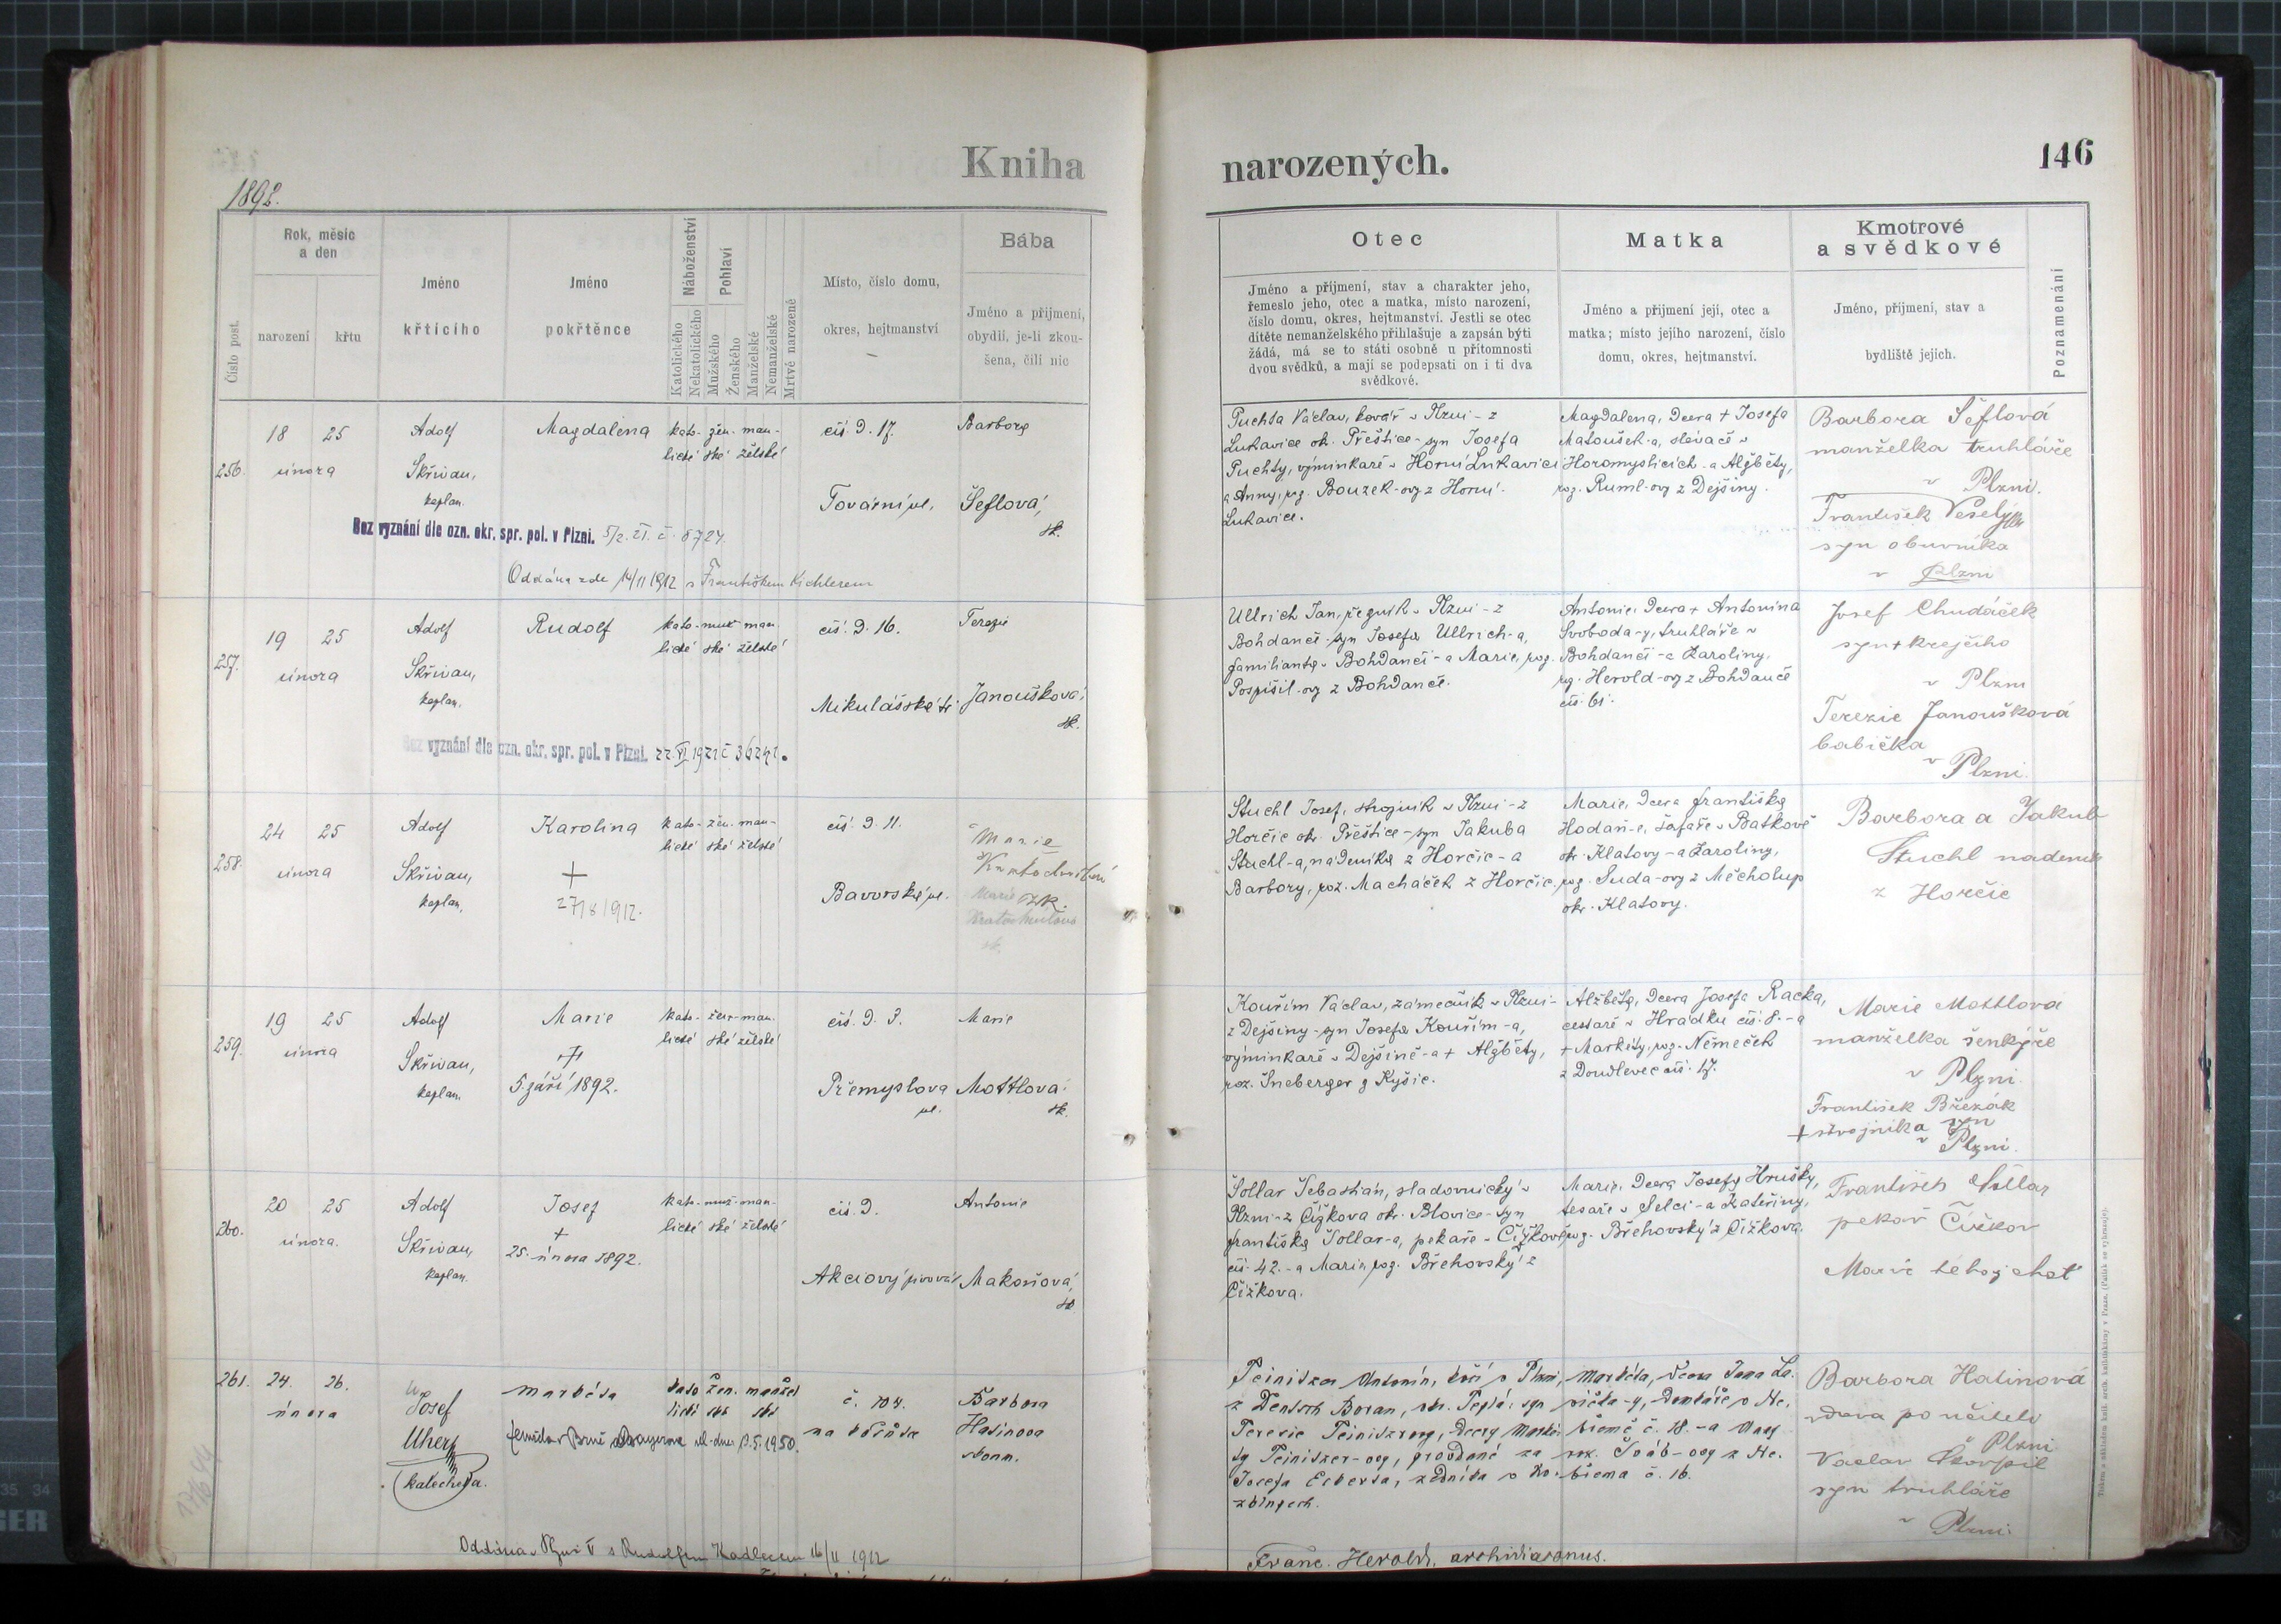 Kniha
narozených.
146
1892.
Číslo post.
Rok, měsíc
a den
narození
křtu
Jméno
křtícího
Jméno
pokřtěnce
Náboženství
Katolického
Nekatolického
Pohlaví
Mužského
Ženského
Manželské
Nemanželské
Mrtvě narozené
Místo, číslo domu,
okres, hejtmanství
Bába
Jméno a příjmení,
obydlí, je-li zkou-
šena, čili nic
Otec
Jméno a příjmení, stav a charakter jeho,
řemeslo jeho, otec a matka, místo narození,
číslo domu, okres, hejtmanství. Jestli se otec
dítěte nemanželského přihlašuje a zapsán býti
žádá, má se to státi osobně u přítomnosti
dvou svědků, a mají se podepsati on i ti dva
svědkové.
Matka
Jméno a příjmení její, otec a
matka; místo jejího narození, číslo
domu, okres, hejtmanství.
Kmotrové
a svědkové
Jméno, příjmení, stav a
bydliště jejich.
Poznamenání
256.
18 25
února
Adolf
Skřivan,
kaplan.
Magdalena
kato- žen- man-
lické ské želské
čís. d. 17.
Tovární ul.
Barbora
Šeflová,
zk.
Bez vyznání dle ozn. okr. spr. pol. v Plzni. 5/2. 21. č. 8724.
Oddána zde 14/11 1912 s Františkem Kichlerem
Puchta Václav, kovář v Plzni - z
Lukavice okr. Přeštice - syn Josefa
Puchty, výminkaře v Horní Lukavici
a Anny, roz. Bouzek-ovy z Horní
Lukavice.
Magdalena, dcera + Josefa
Matoušek-a, slévače v
Horomyslicích - a Alžběty,
roz. Ruml-ovy z Dejšiny.
Barbora Šeflová
manželka truhláře
v Plzni.
František Veselý
syn obuvníka
v Plzni
257.
19 25
února
Adolf
Skřivan,
kaplan.
Rudolf
kato- muž- man-
lické ské želské
čís. d. 16.
Mikulášská tř.
Terezie
Janoušková,
zk.
Bez vyznání dle ozn. okr. spr. pol. v Plzni. 22. VI 1921 č 36241.
Ullrich Jan, řezník v Plzni - z
Bohdanče - syn Josefa Ullrich-a,
familianta v Bohdanči - a Marie, roz.
Pospíšil-ovy z Bohdanče.
Antonie, dcera + Antonína
Svoboda-y, truhláře v
Bohdanči - a Karoliny,
roz. Herold-ovy z Bohdanče
čís. 61.
Josef Chudáček
syn + krejčího
v Plzni
Terezie Janoušková
babička
v Plzni.
258.
24 25
února
Adolf
Skřivan,
kaplan.
Karolina
+
27/8 1912.
kato- žen- man-
lické ské želské
čís. d. 11.
Bavorská ul.
Marie
zk.
Stuchl Josef, strojník v Plzni - z
Horčic okr. Přeštice - syn Jakuba
Stuchl-a, nádeníka z Horčic - a
Barbory, roz. Macháček z Horčic.
Marie, dcera Františka
Hodaň-e, šafáře v Batkově
okr. Klatovy - a Karoliny,
roz. Suda-ovy z Měcholup
okr. Klatovy.
Barbora a Jakub
Stuchl nádeník
z Horčic
259.
19 25
února
Adolf
Skřivan,
kaplan.
Marie
+
5. září 1892.
kato- žen- man-
lické ské želské
čís. d. 3.
Přemyslova
ul.
Marie
Mottlová,
zk.
Kouřim Václav, zámečník v Plzni -
z Dejšiny - syn Josefa Kouřim-a,
výminkaře v Dejšině - a + Alžběty,
roz. Šneberger z Kyšic.
Alžběta, dcera Josefa Racka,
cestaře v Hrádku čís. 8. - a
+ Markéty, roz. Němeček
z Doudlevec čís. 17.
Marie Mottlová
manželka šenkýře
v Plzni.
František Březák
+ strojníka syn
v Plzni.
260.
20 25
února.
Adolf
Skřivan,
kaplan.
Josef
+
25. února 1892.
kato- muž- man-
lické ské želské
čís. d.
Akciový pivovár
Antonie
Makoňová,
zk.
Šollar Šebastián, sladovnický v
Plzni - z Čížkova okr. Blovice - syn
Františka Šollar-a, pekaře v Čížkově
čís. 42. - a Marie, roz. Břehovský z
Čížkova.
Marie, dcera Josefa Hrušky,
tesaře v Selci - a Kateřiny,
roz. Břehovský z Čížkova.
František Šollar
pekař Čížkov
Marie téhož choť
261.
24. 26.
února
Josef
Uherž
katecheta.
Markéta
kato žen. manžel
lické ské ské
č. 704.
Barbora
Hatinova
zkouš.
Oddána v Plzni s Rudolfem Kadlecem 16/11 1912
Teinitzer Antonín, kočí v Plzni,
z Deutsch Boran, okr. Teplá, syn
Terezie Teinitzerovy, dcery Marké-
ty Teinitzer-ovy, provdané za
Josefa Eckerta, zedníka v
Markéta, dcera Jana
č. 18. - a
č. 16.
Barbora Hatinová
vdova po učiteli
v Plzni
Václav Škorpil
syn truhláře
v Plzni.
Franc. Herold, archidiaconus.